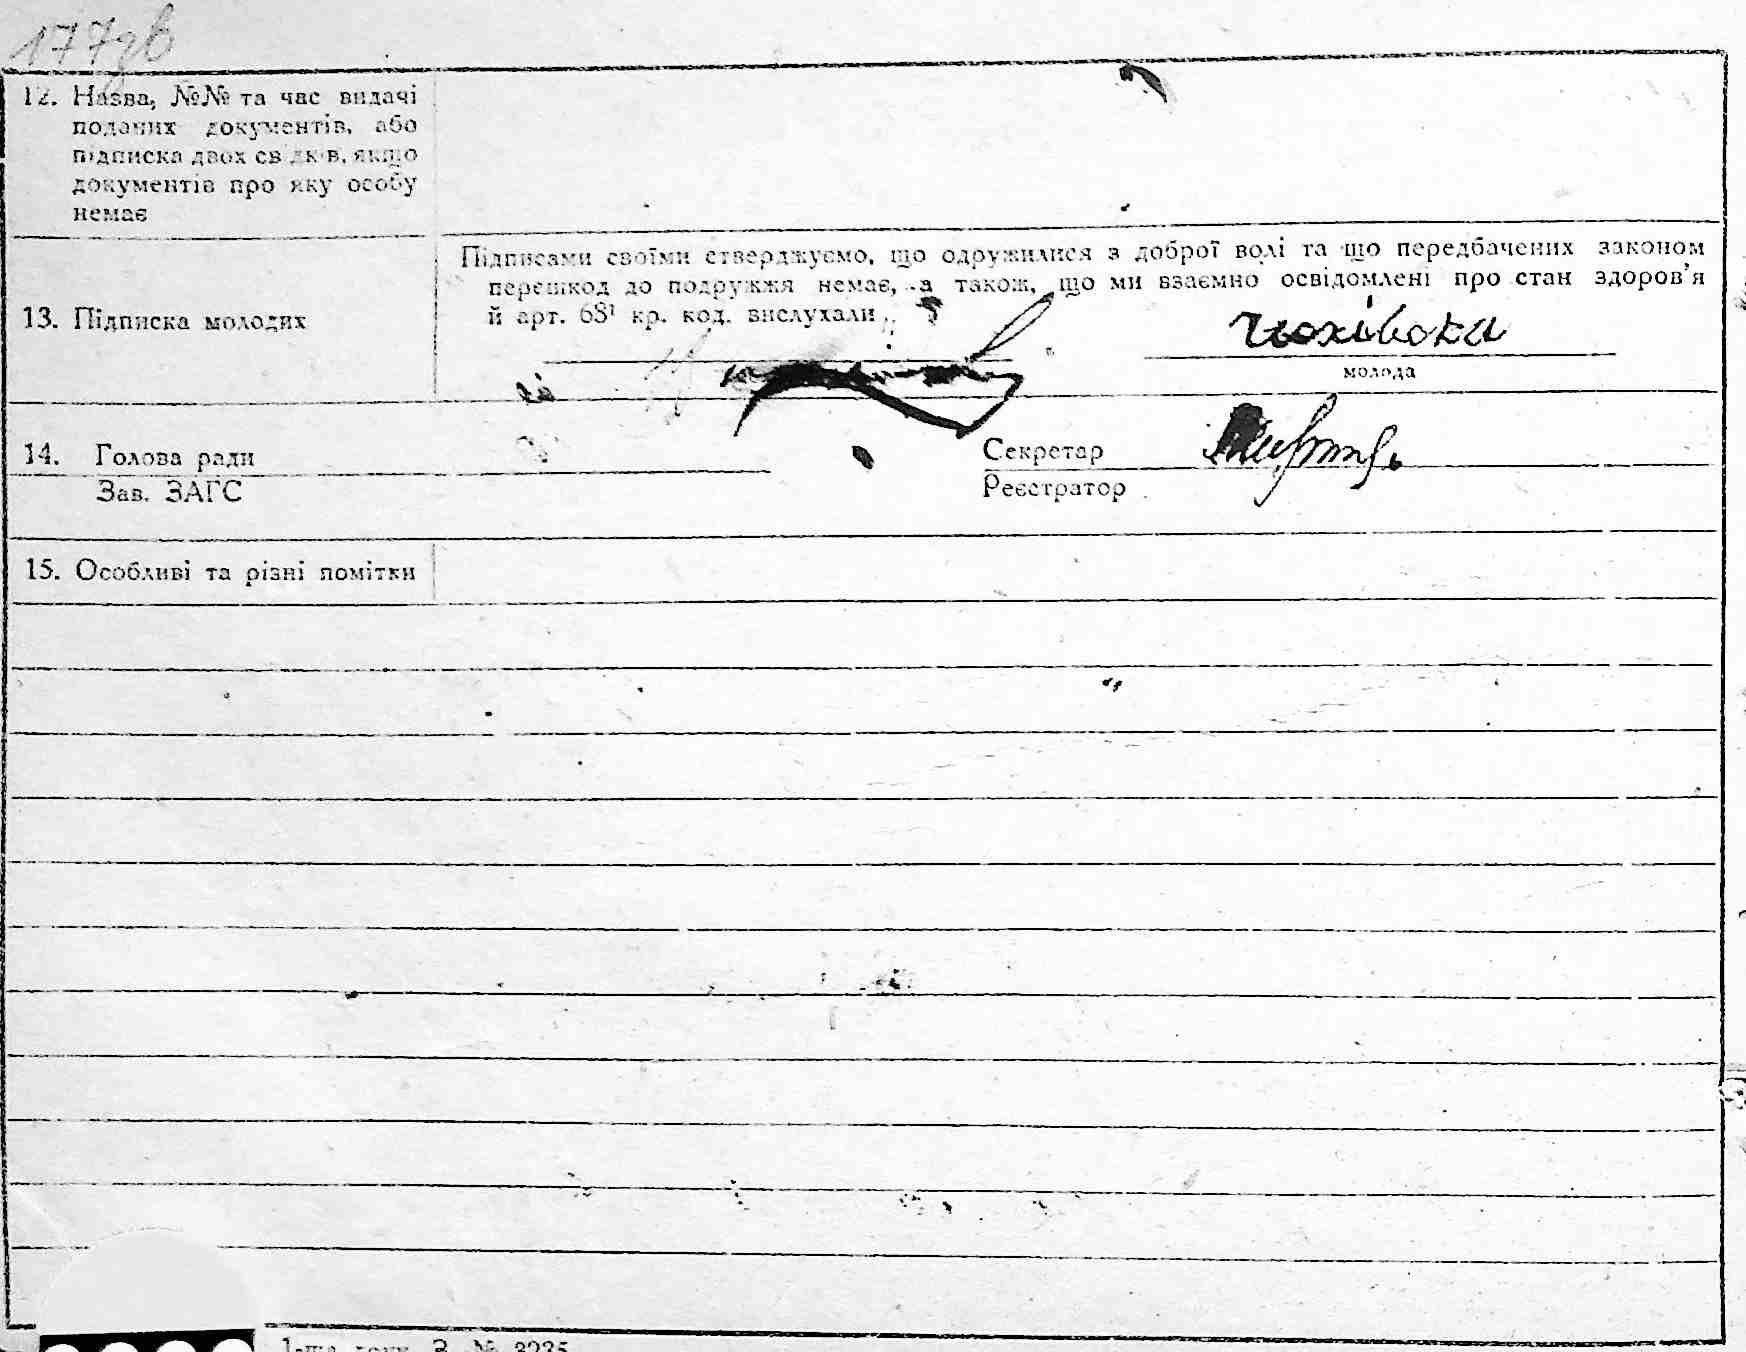 177зв
12. Назва, №№ та час видачі
поданих документів, або
підписка двох свідків, якщо
документів про яку особу
немає
Підписами своїми стверджуємо, що одружилися з доброї волі та що передбачених законом
перешкод до подружжя немає, а також, що ми взаємно освідомлені про стан здоров'я
й арт. 68¹ кр. код. вислухали
13. Підписка молодих
молода
14. Голова ради
Секретар
Зав. ЗАГС
Реєстратор
15. Особливі та різні помітки